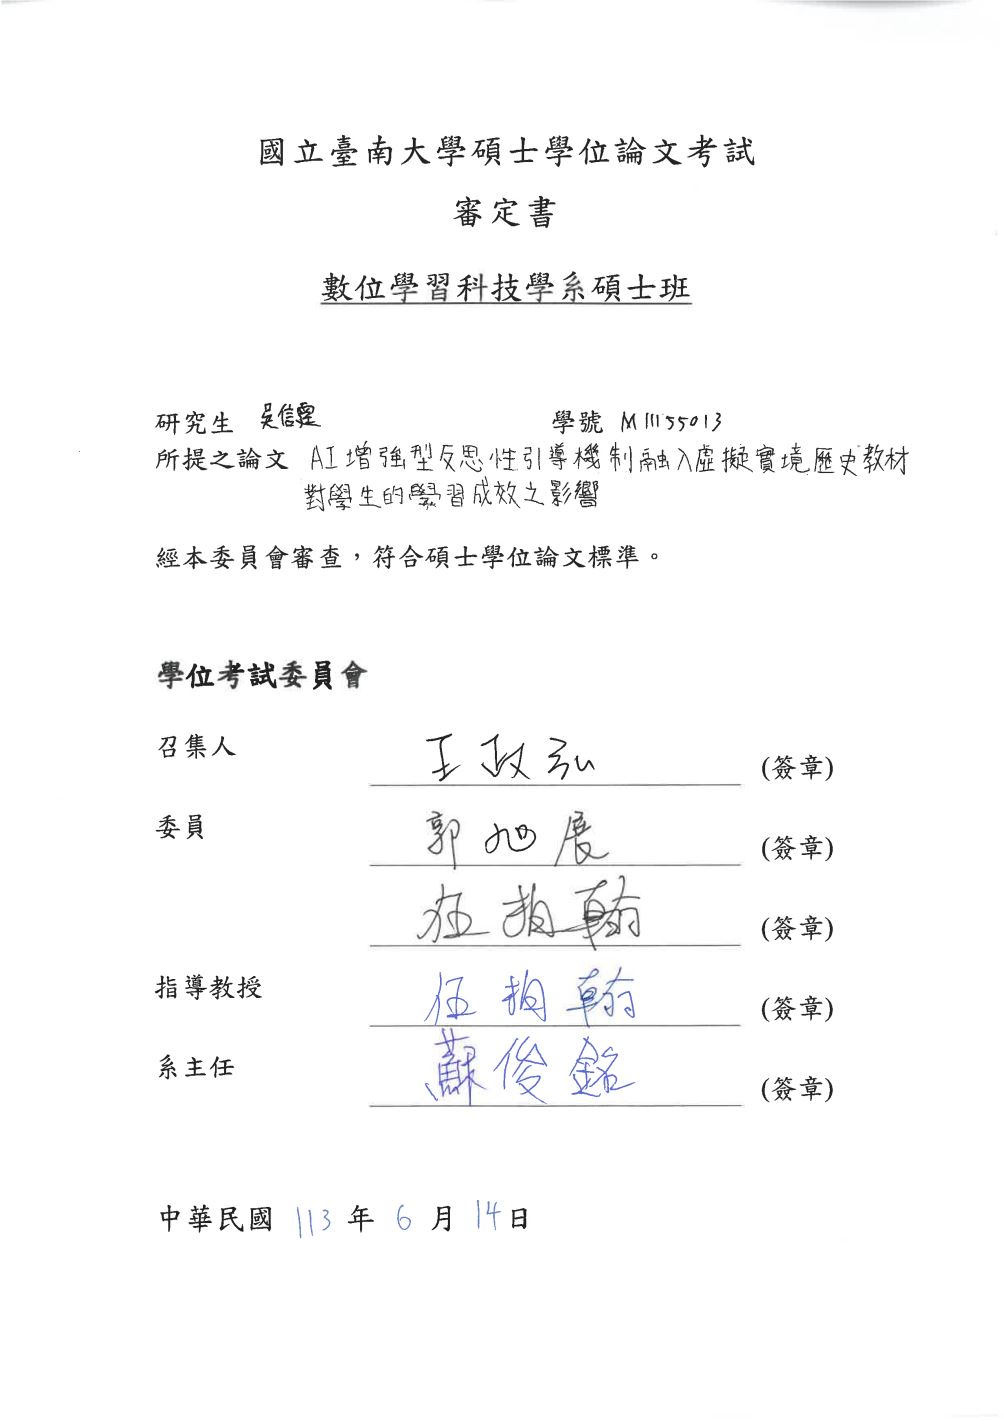 國立臺南大學碩士學位論文考試
審定書
數位學習科技學系碩士班
研究生 吳信霆 學號 M11155013
所提之論文 AI增強型反思性引導機制融入虛擬實境歷史教材
對學生的學習成效之影響
經本委員會審查,符合碩士學位論文標準。
學位考試委員會
召集人 王政弘 (簽章)
委員 郭旭展 (簽章)
伍柏翰 (簽章)
指導教授 伍柏翰 (簽章)
系主任 蘇俊銘 (簽章)
中華民國 113 年 6 月 14 日